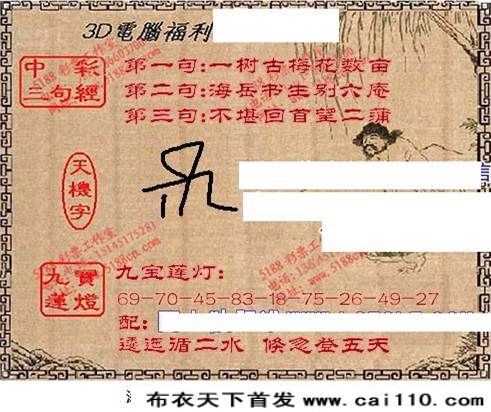 3D電腦福利
中彩
三句經
第一句:一树古梅花数亩
第二句:海岳书生别六庵
第三句:不堪回首望二蒲
天機字
5188 彩票工作室
九寶
蓮燈
九宝莲灯:
69-70-45-83-18-75-26-49-27
配:
逶迤循二水 倏忽登五天
布衣天下首发 www.cai110.com